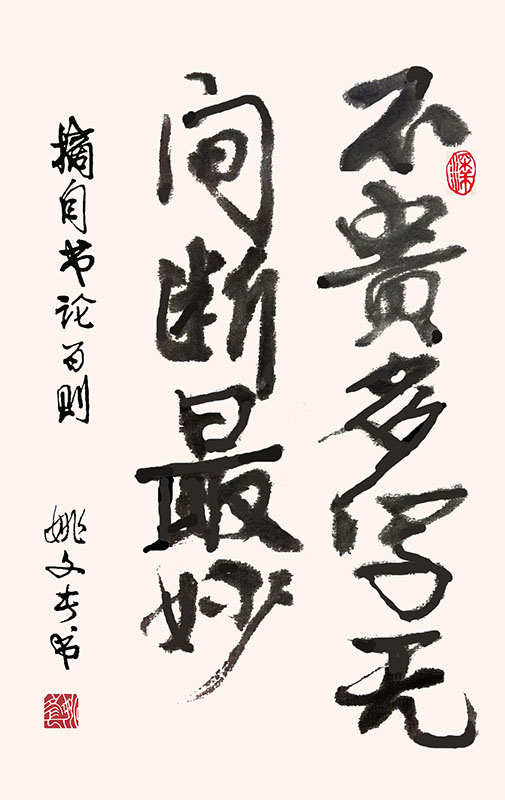 不贵多写无
间断最妙
摘自书论百则
姚文书